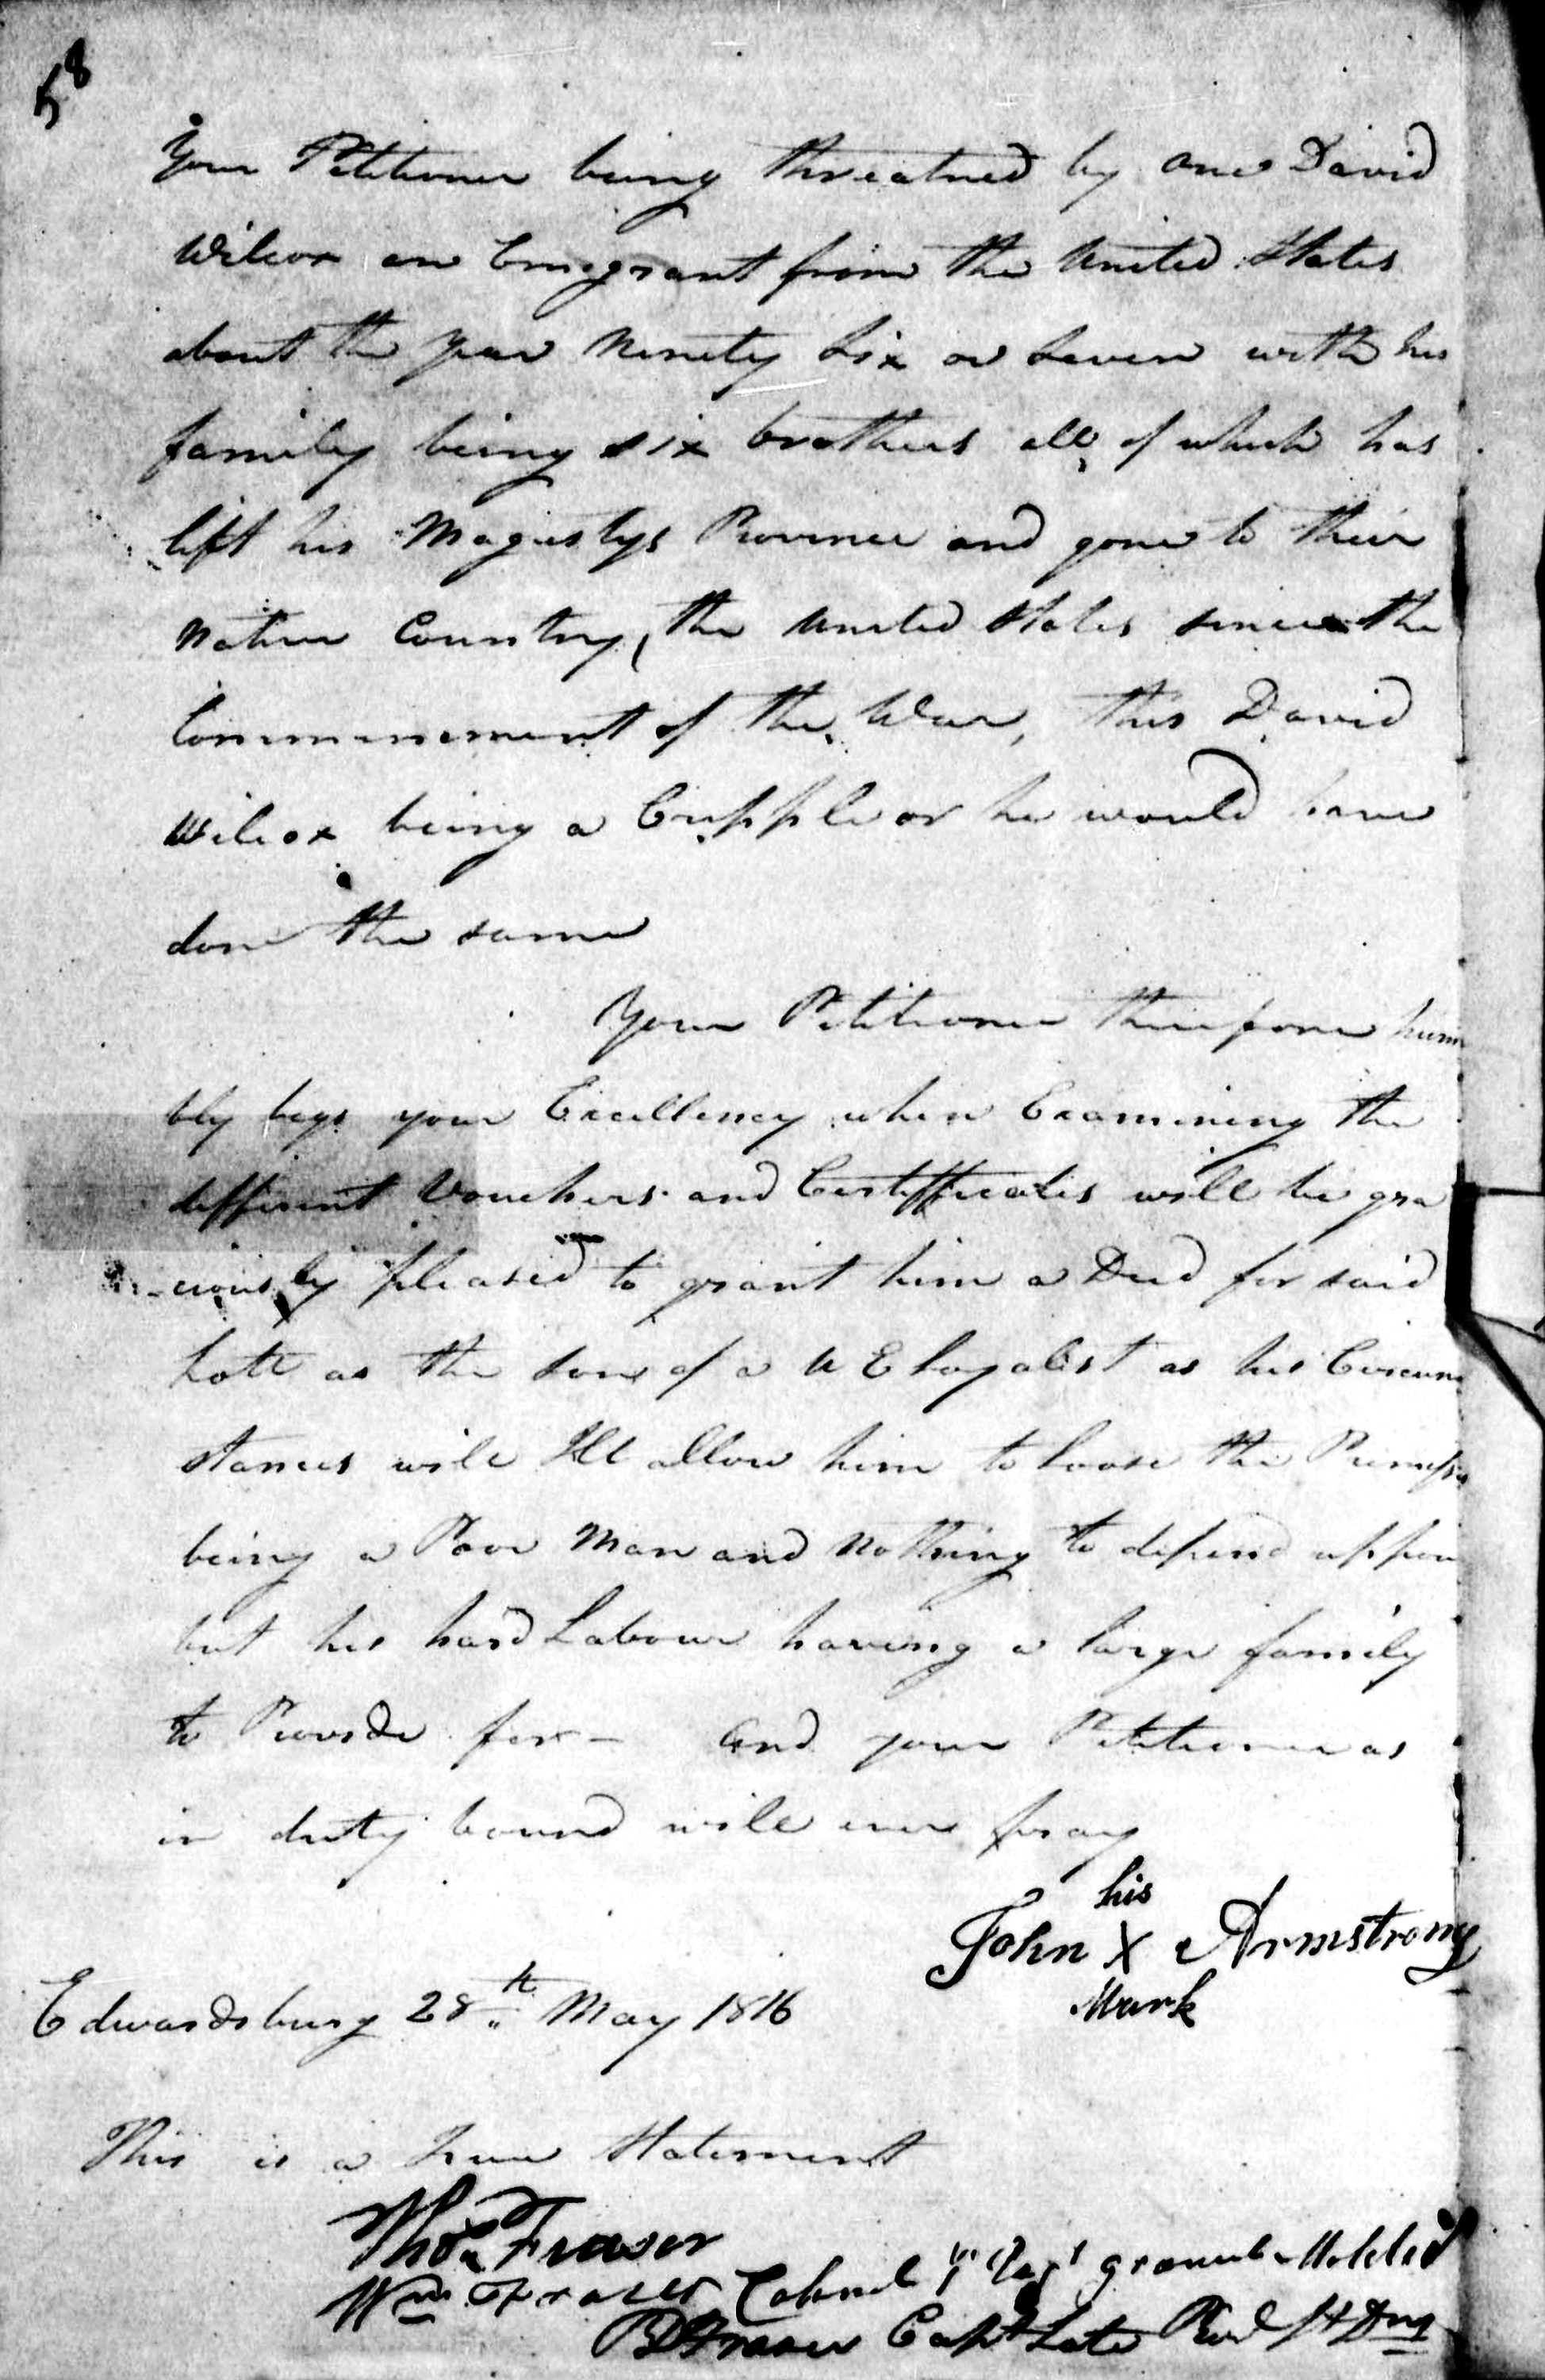 58
Your Petitioner being threatned by one David
Wilcox an Emigrant from the United States
about the Year Ninety Six or Seven with his
family being six brothers all of which has
left his Magistys Province and gone to their
Native Country, the United States since the
Commencement of the War, this David
Wilcox being a Cripple or he would have
done the same
Your Petitioner therefore hum
bly begs your Excellency when Examining the
different Vouchers and Certifficates will be gra
ciously pleased to grant him a Deed for said
Lott as the Son of a U E Loyalist as his Circum
stances will Ill allow him to loose the
being a Poor Man and Nothing to depend uppon
but his hard Labour having a large family
to Provide for - and your Petitioner as
in duty bound will ever pray
his
John X Armstrong
Mark
Edwardsburg 28th May 1816
This is a true Statement
Thos Fraser
Wm Fraser Colonel
Fraser Capt Late